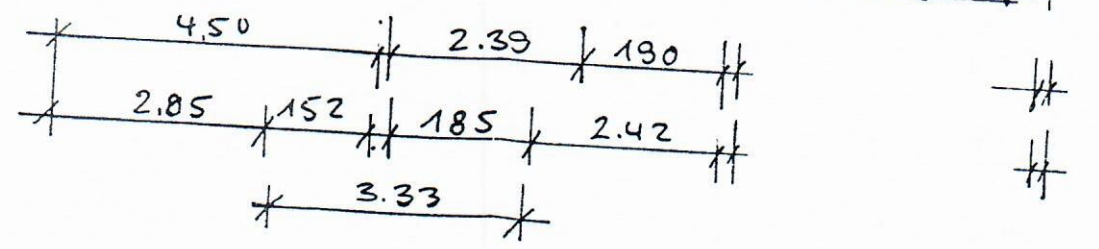 4.50 2.39 190
2.85 152 185 2.42
3.33